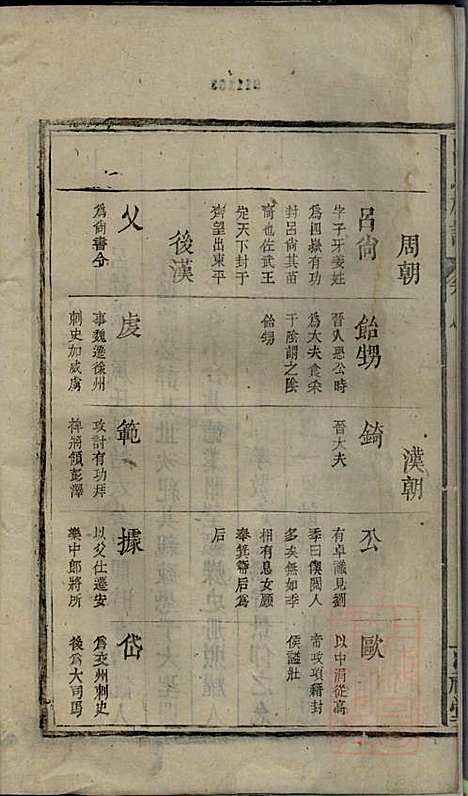 周朝
呂尚
字子牙姜姓
為四嶽有功
封呂尚其苗
裔也佐武王
定天下封于
齊望出東平
飴甥
晉人惠公時
為大夫食采
于陰謂之陰
飴甥
錡
晉大夫
漢朝
公
有卓識見劉
季曰僕閱人
多矣無如季
相有息女願
奉箕帚后為
后
歐
以中涓從高
帝攻項籍封
侯諡壯
後漢
父
為尚書令
虔
事魏遷徐州
刺史加威虜
範
攻討有功拜
裨將領彭澤
據
以父仕遷安
樂中郎將所
岱
為交州刺史
後為大司馬